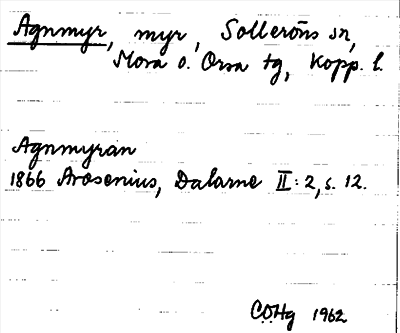 Agnmyr, myr, Solleröns sn,
Mora o. Orsa tg, Kopp. l.
Agnmyran
1866 Arosenius, Dalarne II:2, s. 12.
COHg 1962